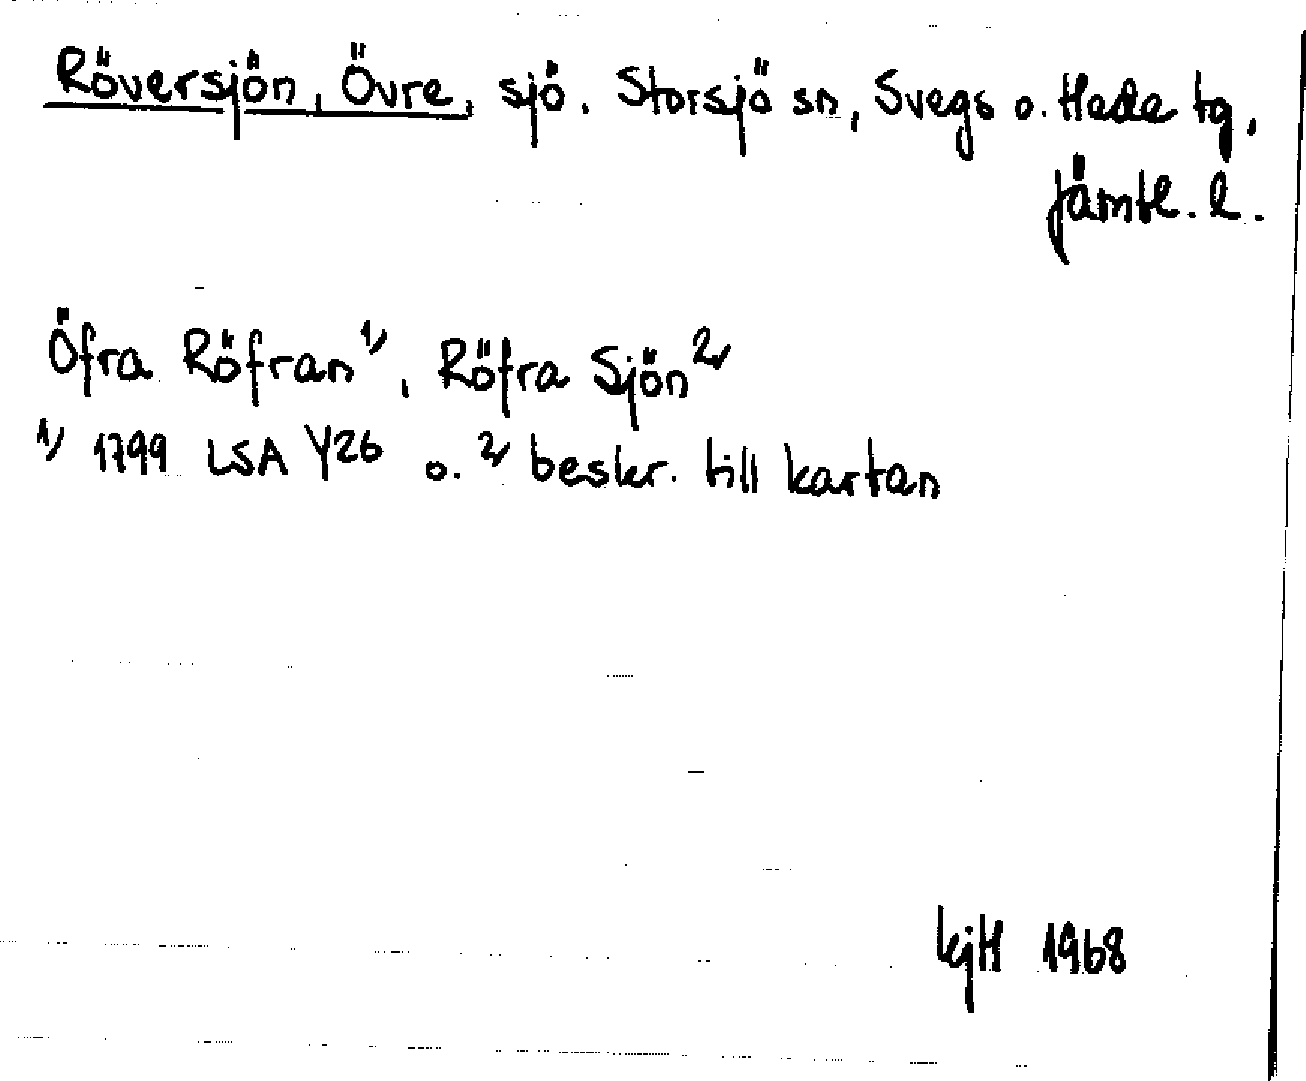 Röversjön, Övre, sjö. Storsjö sn, Svegs o. Hede tg,
Jämtl. l.
Öfra Röfran 1), Röfra Sjön 2)
1) 1799 LSA Y26 o. 2) beskr. till kartan
kjH 1968